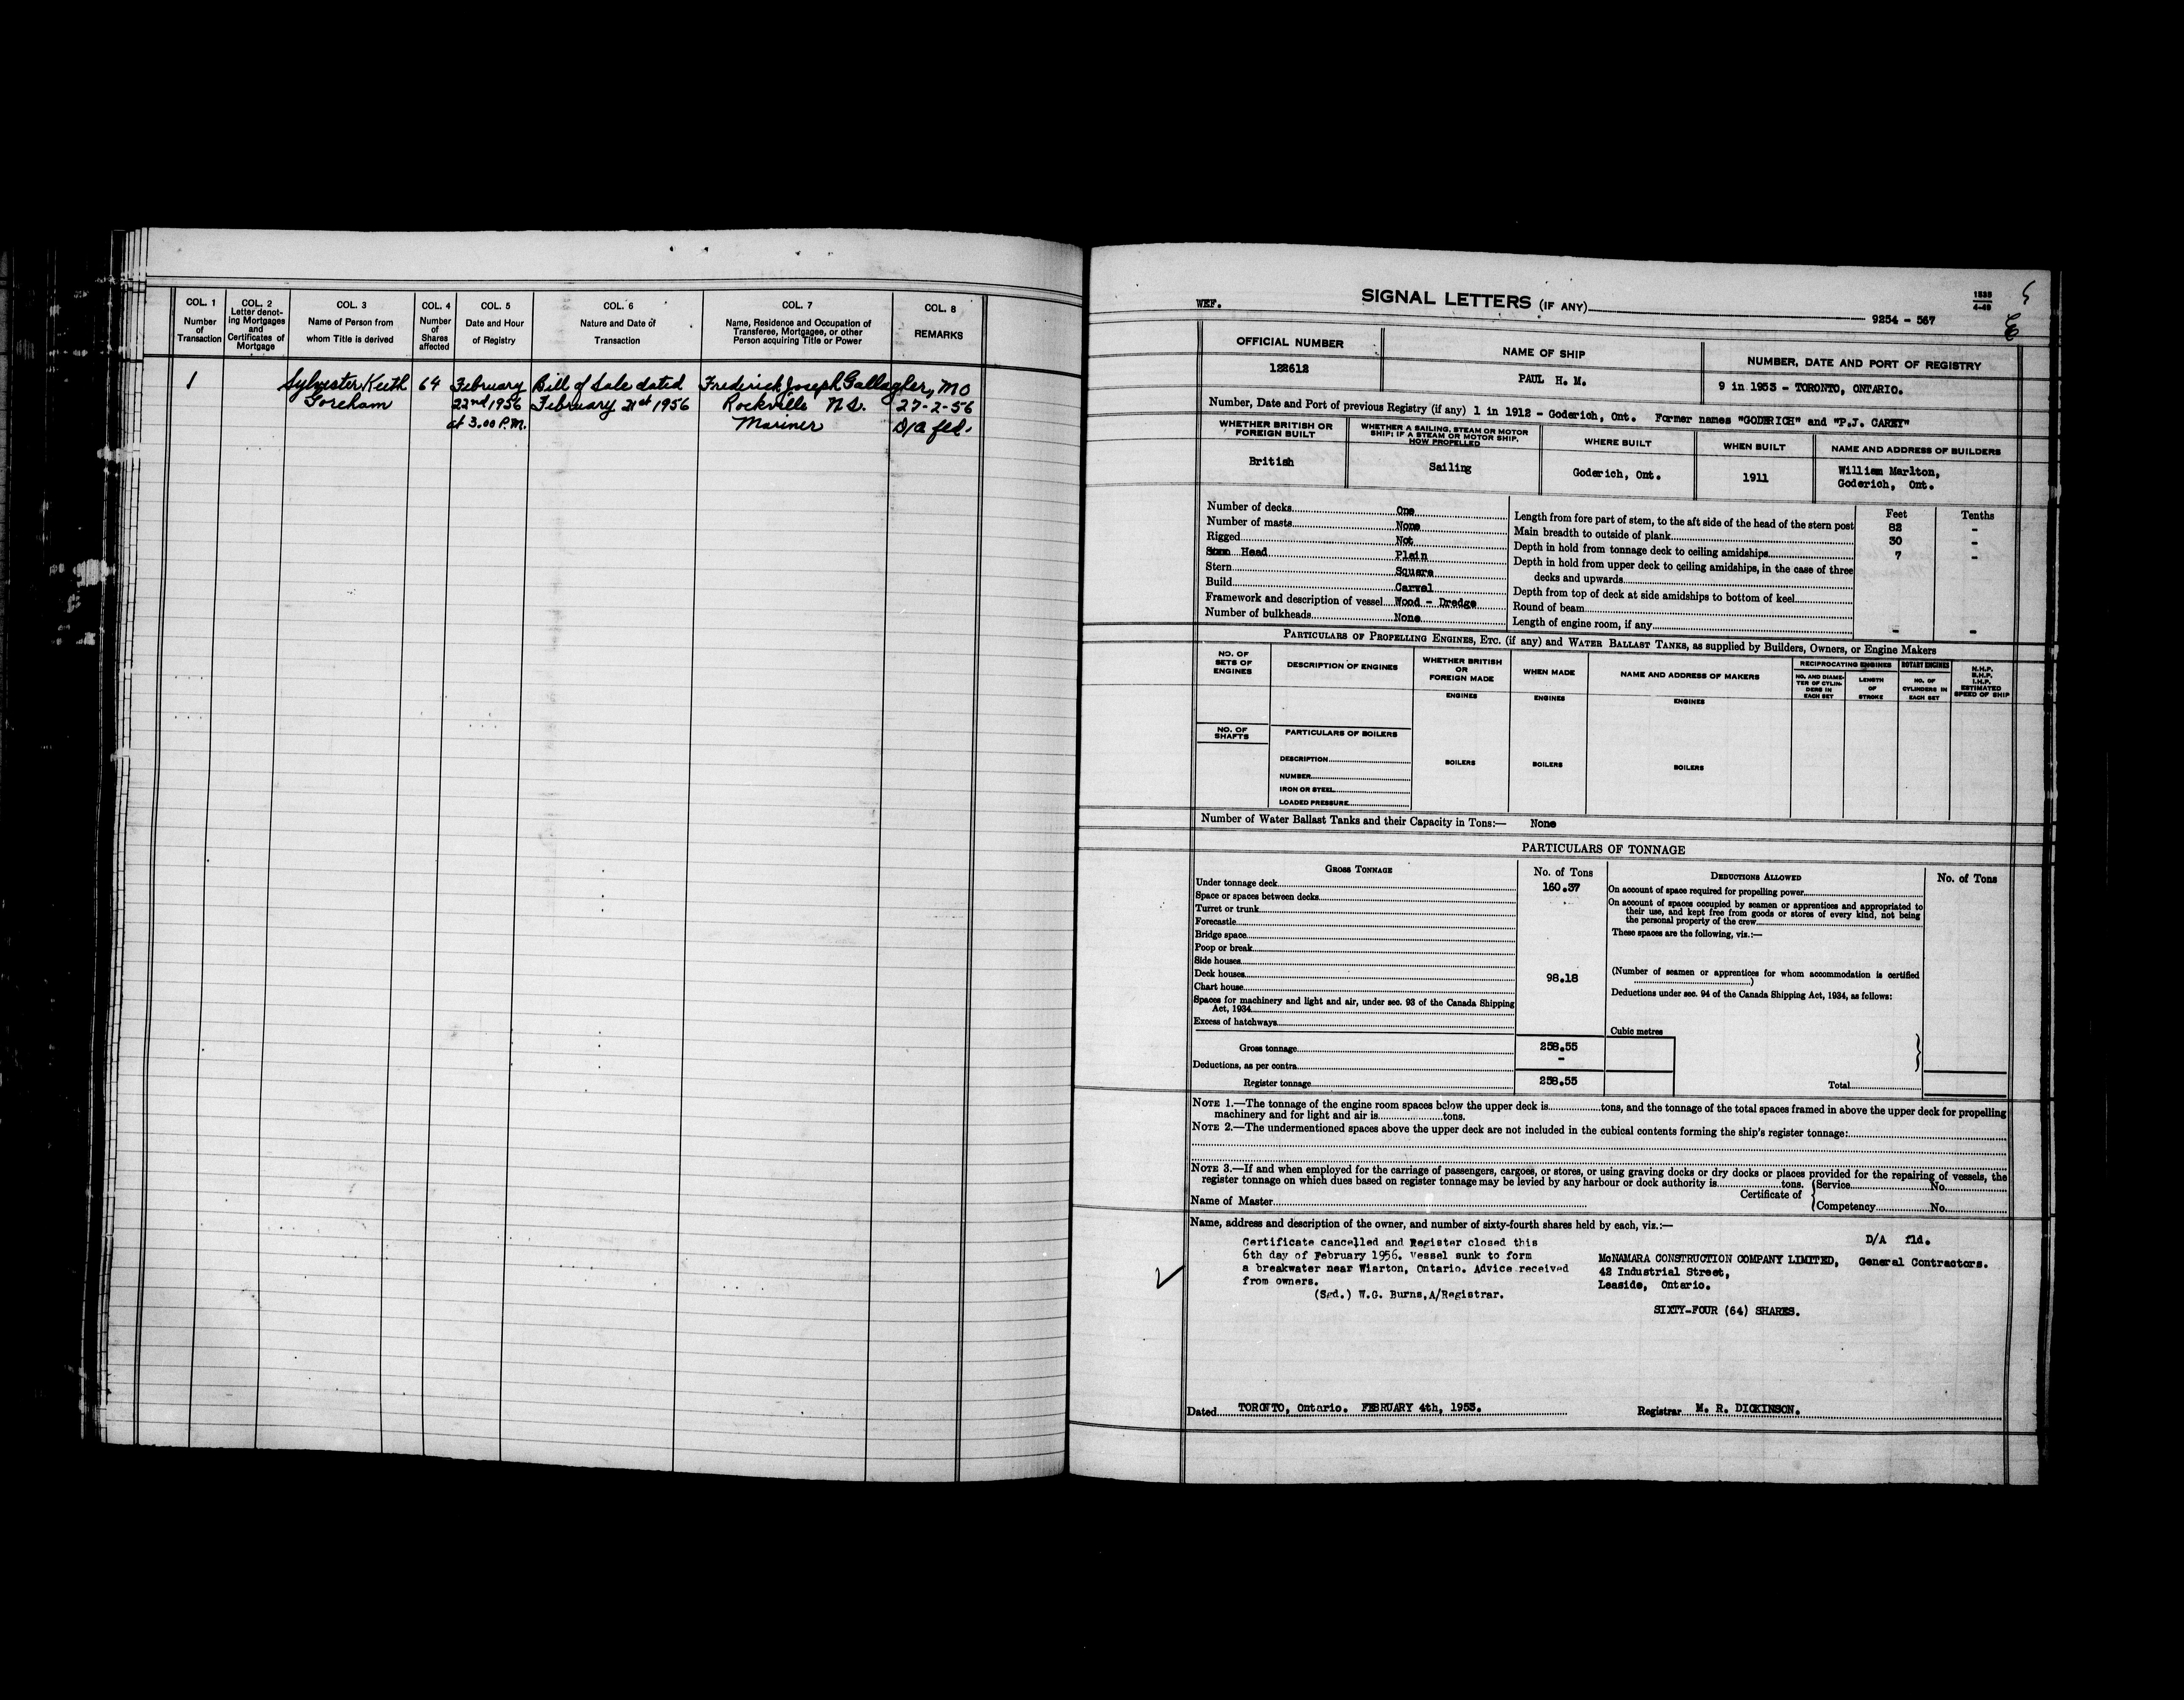 COL. 1
Number
of
Transaction
COL. 2
Letter denot-
ing Mortgages
and
Certificates of
Mortgage
COL. 3
Name of Person from
whom Title is derived
COL. 4
Number
of
Shares
affected
COL. 5
Date and Hour
of Registry
COL. 6
Nature and Date of
Transaction
COL. 7
Name, Residence and Occupation of
Transferee, Mortgagee, or other
Person acquiring Title or Power
COL. 8
REMARKS
1 Sylvester Keith 64 February Bill of Sale dated Frederick Joseph Gallagher, MO
Goreham 22nd 1956 February 21st 1956 Rockville N.S. 27-2-56
at 3.00 P.M. Mariner D/A fld.
WEF. SIGNAL LETTERS (IF ANY) 9254 - 567
1535
4-49
OFFICIAL NUMBER
122612
NAME OF SHIP
PAUL H. M.
NUMBER, DATE AND PORT OF REGISTRY
9 in 1953 - TORONTO, ONTARIO.
Number, Date and Port of previous Registry (if any) 1 in 1912 - Goderich, Ont. Former names "GODERICH" and "P.J. CAREY"
WHETHER BRITISH OR
FOREIGN BUILT
British
WHETHER A SAILING, STEAM OR MOTOR
SHIP; IF A STEAM OR MOTOR SHIP,
HOW PROPELLED
Sailing
WHERE BUILT
Goderich, Ont.
WHEN BUILT
1911
NAME AND ADDRESS OF BUILDERS
William Marlton,
Goderich, Ont.
Number of decks One
Number of masts None
Rigged Not
Head Plain
Stern Square
Build Carvel
Framework and description of vessel Wood - Dredge
Number of bulkheads None
Feet Tenths
Length from fore part of stem, to the aft side of the head of the stern post 82 -
Main breadth to outside of plank 30 -
Depth in hold from tonnage deck to ceiling amidships 7 -
Depth in hold from upper deck to ceiling amidships, in the case of three
decks and upwards
Depth from top of deck at side amidships to bottom of keel
Round of beam
Length of engine room, if any - -
PARTICULARS OF PROPELLING ENGINES, ETC. (if any) and WATER BALLAST TANKS, as supplied by Builders, Owners, or Engine Makers
NO. OF
SETS OF
ENGINES
DESCRIPTION OF ENGINES
WHETHER BRITISH
OR
FOREIGN MADE
ENGINES
WHEN MADE
ENGINES
NAME AND ADDRESS OF MAKERS
ENGINES
RECIPROCATING ENGINES
NO. AND DIAME-
TER OF CYLIN-
DERS IN
EACH SET
LENGTH
OF
STROKE
ROTARY ENGINES
NO. OF
CYLINDERS IN
EACH SET
N.H.P.
B.H.P.
I.H.P.
ESTIMATED
SPEED OF SHIP
NO. OF
SHAFTS
PARTICULARS OF BOILERS
DESCRIPTION
NUMBER
IRON OR STEEL
LOADED PRESSURE
BOILERS
BOILERS
BOILERS
Number of Water Ballast Tanks and their Capacity in Tons:— None
PARTICULARS OF TONNAGE
GROSS TONNAGE No. of Tons
Under tonnage deck 160.37
Space or spaces between decks
Turret or trunk
Forecastle
Bridge space
Poop or break
Side houses
Deck houses 98.18
Chart house
Spaces for machinery and light and air, under sec. 93 of the Canada Shipping
Act, 1934
Excess of hatchways
Gross tonnage 258.55
Deductions, as per contra -
Register tonnage 258.55
DEDUCTIONS ALLOWED No. of Tons
On account of space required for propelling power
On account of spaces occupied by seamen or apprentices and appropriated to
their use, and kept free from goods or stores of every kind, not being
the personal property of the crew
These spaces are the following, viz.:—
(Number of seamen or apprentices for whom accommodation is certified
)
Deductions under sec. 94 of the Canada Shipping Act, 1934, as follows:
Cubic metres
Total
NOTE 1.—The tonnage of the engine room spaces below the upper deck is tons, and the tonnage of the total spaces framed in above the upper deck for propelling
machinery and for light and air is tons.
NOTE 2.—The undermentioned spaces above the upper deck are not included in the cubical contents forming the ship's register tonnage:
NOTE 3.—If and when employed for the carriage of passengers, cargoes, or stores, or using graving docks or dry docks or places provided for the repairing of vessels, the
register tonnage on which dues based on register tonnage may be levied by any harbour or dock authority is tons.
Name of Master Certificate of Service No.
Competency No.
Name, address and description of the owner, and number of sixty-fourth shares held by each, viz.:—
Certificate cancelled and Register closed this
6th day of February 1956. Vessel sunk to form
a breakwater near Wiarton, Ontario. Advice received
from owners.
(Sgd.) W.G. Burns, A/Registrar.
D/A fld.
McNAMARA CONSTRUCTION COMPANY LIMITED, General Contractors.
42 Industrial Street,
Leaside, Ontario.
SIXTY-FOUR (64) SHARES.
Dated TORONTO, Ontario. FEBRUARY 4th, 1953. Registrar M. R. DICKINSON.